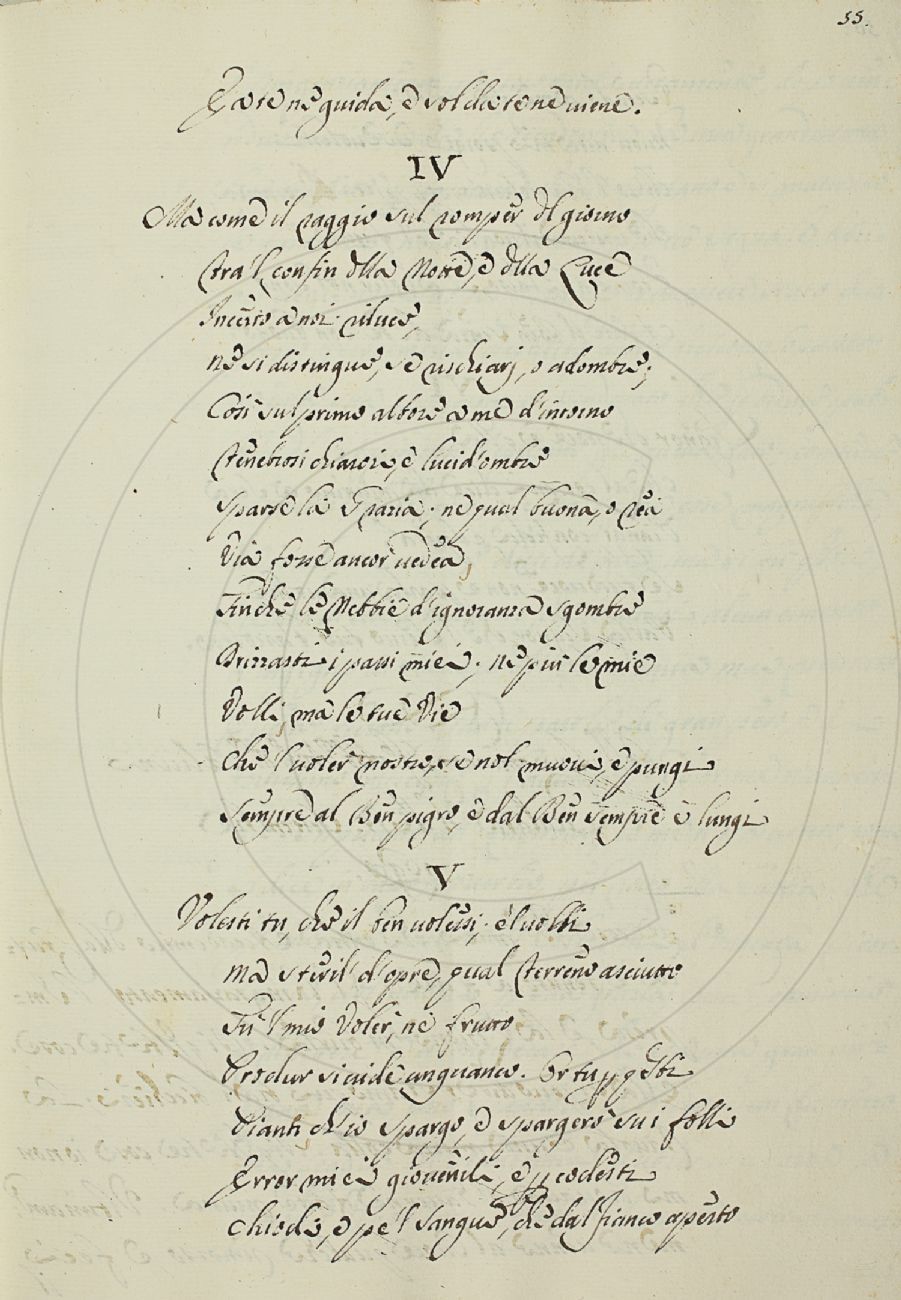 55.
E a te ne guida, e sol da te ne viene.
IV
Ma come il raggio sul romper del giorno
tra 'l confin della Notte, e della Luce
Incerto a noi riluce,
ne si distingue, se rischiari, o adombre;
Così sul primo albore a me d'intorno
tenebrosi chiarori, e lucid'ombre
sparse la Grazia; ne qual buona, o rea
Via fosse ancor vedea,
Finche le Nebbie d'ignoranza sgombre
Drizzasti i passi miei; ne più le mie
Volli, ma le tue Vie
che 'l voler nostro, se nol muovi, e pungi
sempre al Ben pigro, e dal Ben sempre è lungi
V
Volesti tu, che il ben volessi; e 'l volli
ma steril' d'opre, qual terreno asciutto
Fu 'l mio Voler, ne frutto
Produr si vide unquanco. Or tu p questi
Pianti ch'io spargo, e spargerò su i folli
Error miei giovenili, e p codesti
Chiodi, e pe 'l sangue, che dal fianco aperto